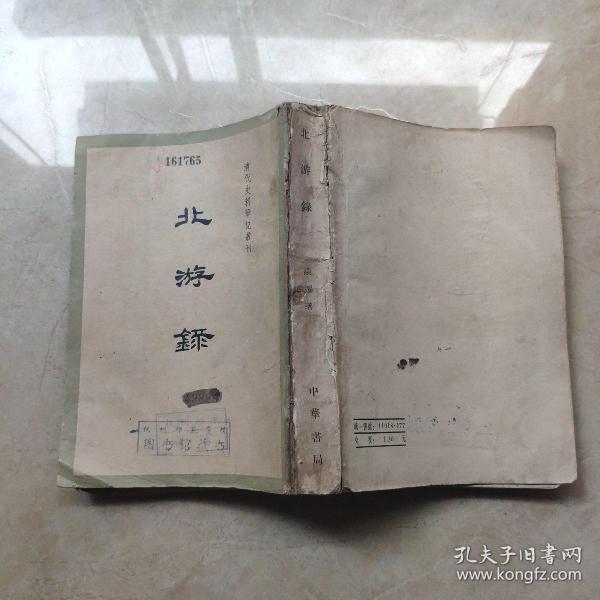 161765
清代史料筆記叢刊
北游錄
北游錄
談遷著
中華書局
統一書號：11018·177
定價：1.30 元
孔夫子旧书网
www.kongfz.com